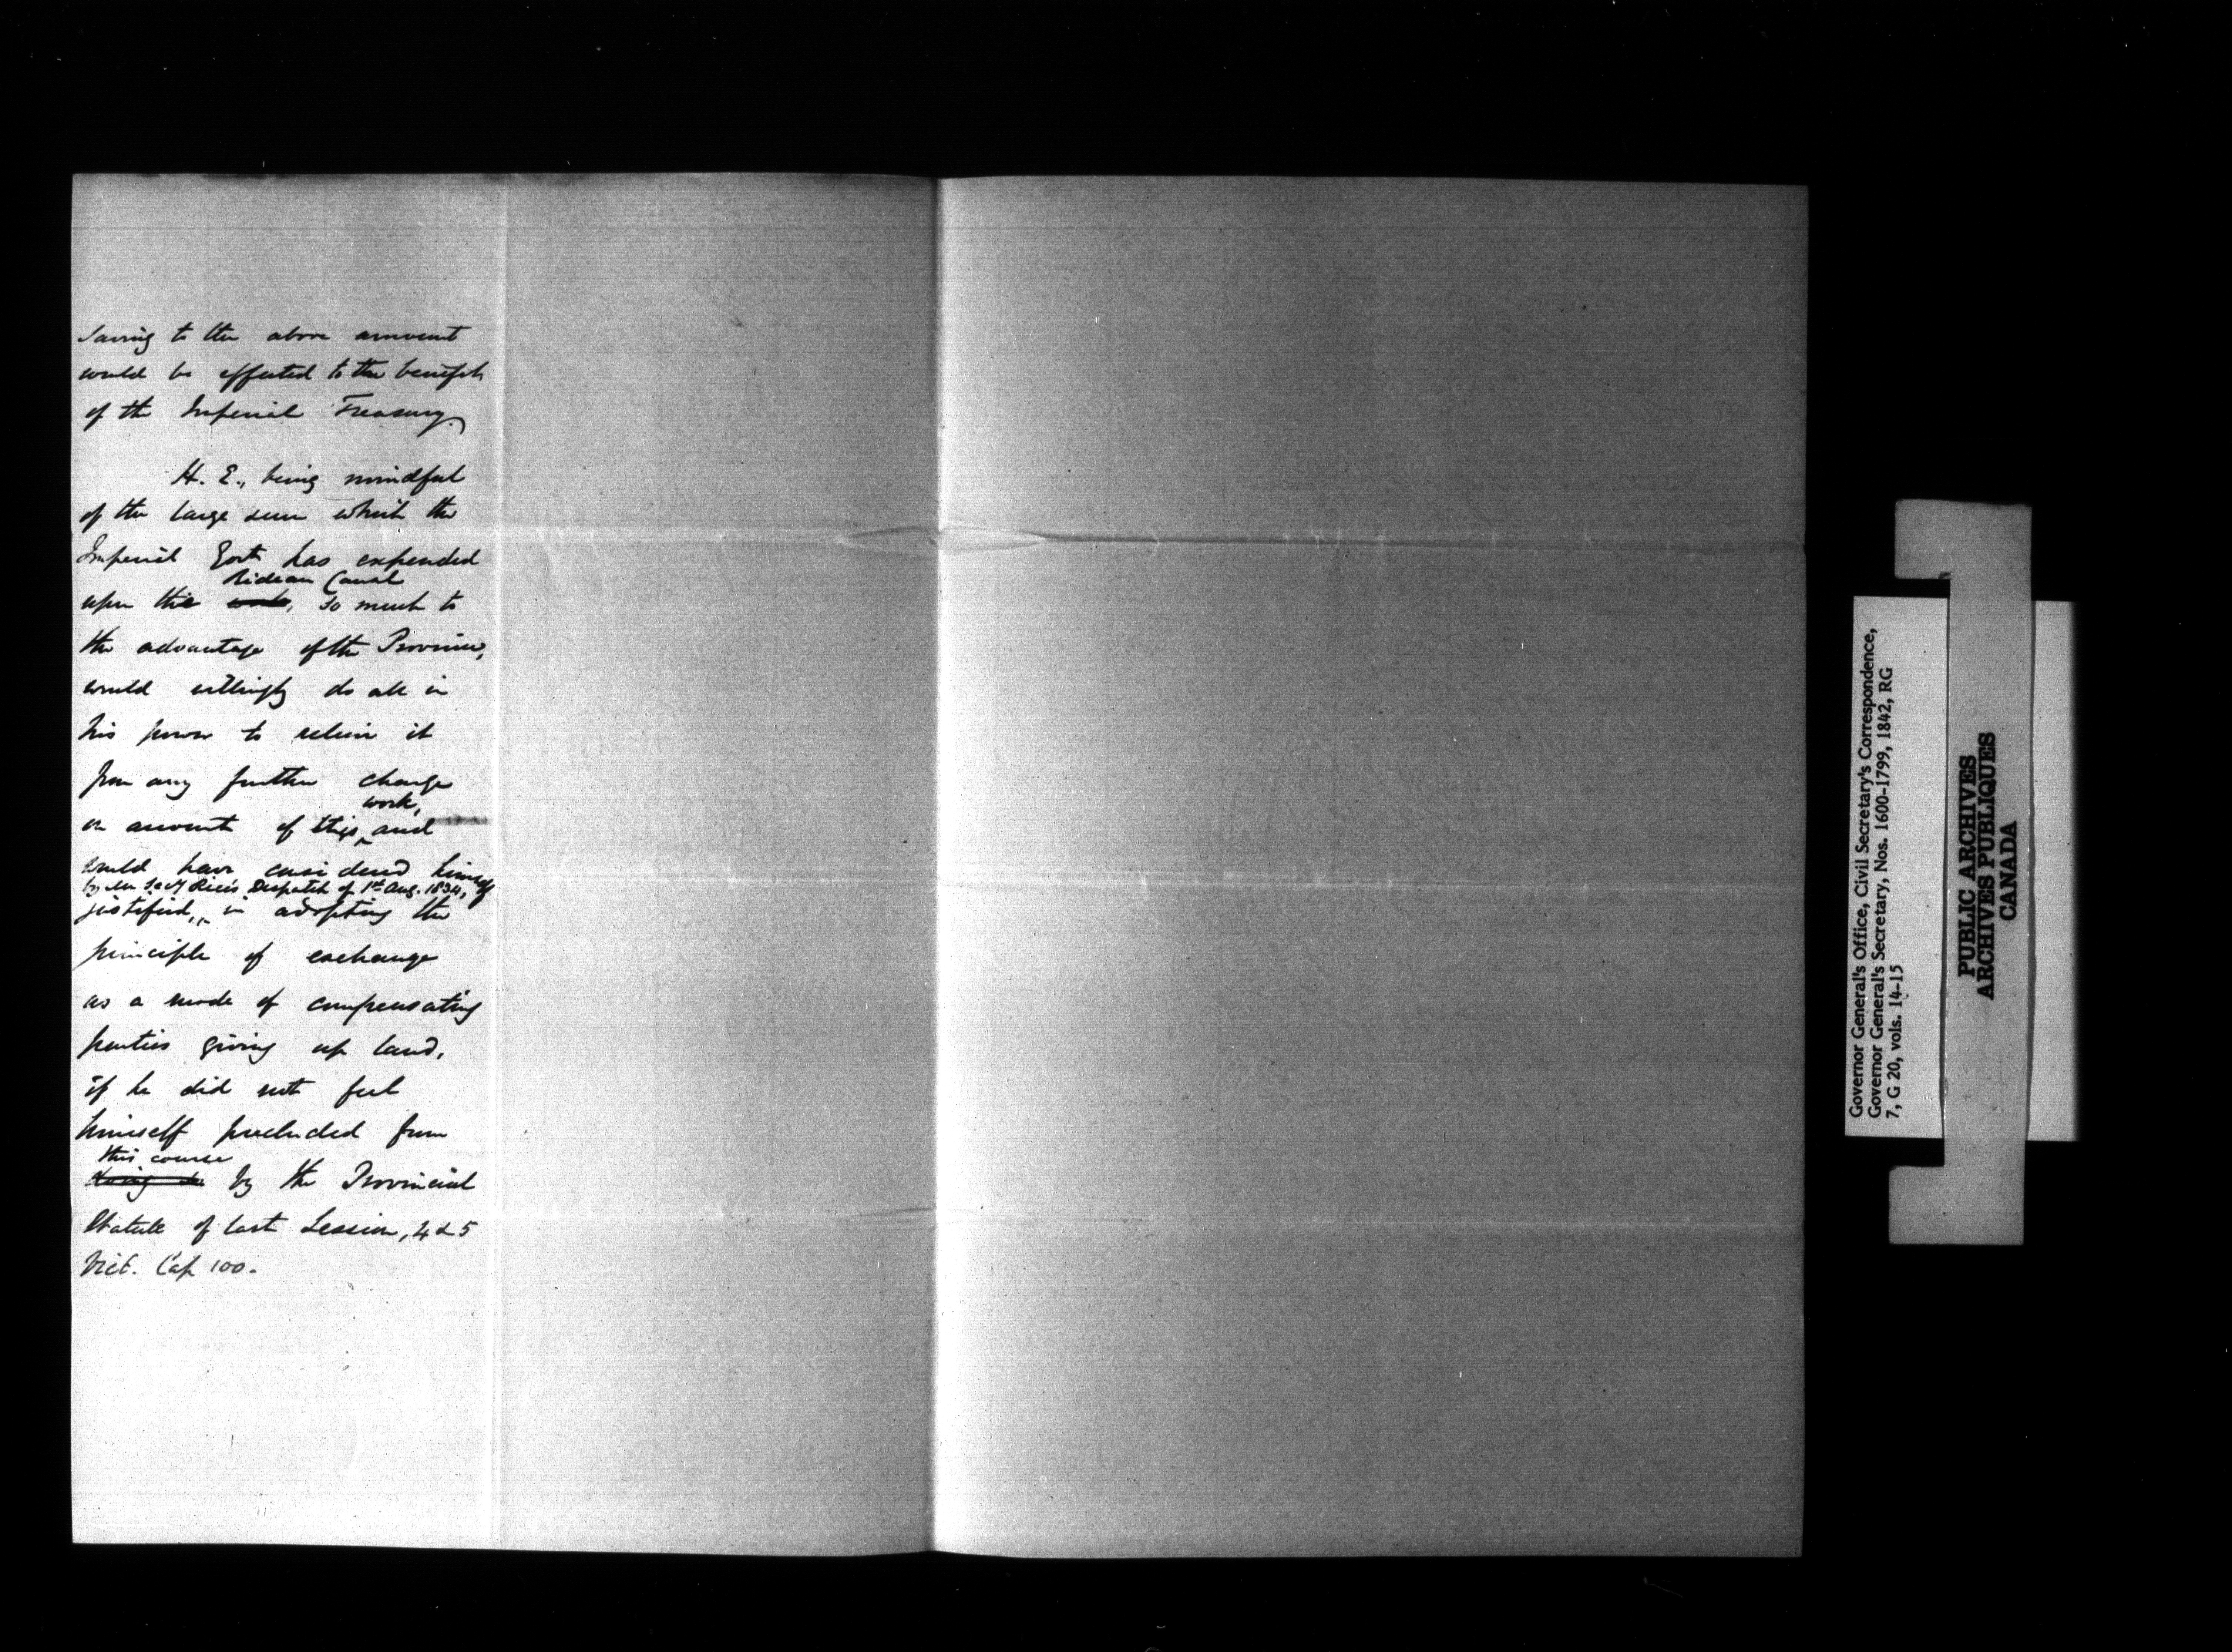 saving to the above amount
would be effected to the benefit
of the Imperial Treasury.
H. E., being mindful
of the large sum which the
Imperial Govt has expended
Rideau Canal
upon the work, so much to
the advantage of the Province,
would willingly do all in
his power to relieve it
from any further charge
work,
on account of this, and
would have considered himself
by Mr Secy Rice's Despatch of 1st Aug. 1834,
justified, in adopting the
principle of exchange
as a mode of compensating
parties giving up land,
if he did not feel
himself precluded from
this course
doing so by the Provincial
Statute of last Session, 4 & 5
Vict. Cap 100.
Governor General's Office, Civil Secretary's Correspondence,
Governor General's Secretary, Nos. 1600-1799, 1842, RG
7, G 20, vols. 14-15
PUBLIC ARCHIVES
ARCHIVES PUBLIQUES
CANADA